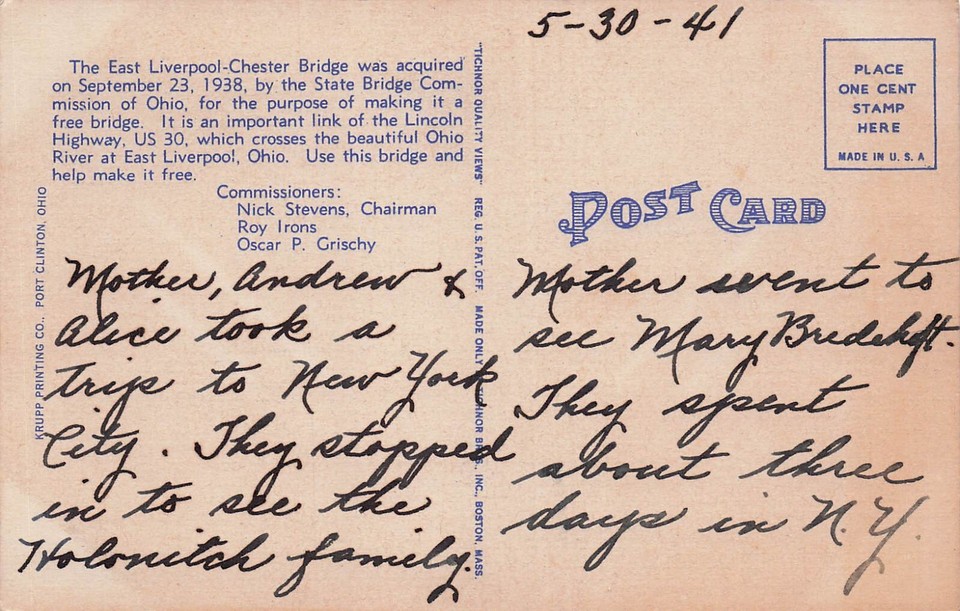 5-30-41
The East Liverpool-Chester Bridge was acquired
on September 23, 1938, by the State Bridge Com-
mission of Ohio, for the purpose of making it a
free bridge. It is an important link of the Lincoln
Highway, US 30, which crosses the beautiful Ohio
River at East Liverpool, Ohio. Use this bridge and
help make it free.
Commissioners:
Nick Stevens, Chairman
Roy Irons
Oscar P. Grischy
KRUPP PRINTING CO., PORT CLINTON, OHIO
Mother, Andrew &
Alice took a
trip to New York
City. They stopped
in to see the
Holonitch family.
"TICHNOR QUALITY VIEWS" REG. U. S. PAT. OFF. MADE ONLY BY TICHNOR BROS. INC., BOSTON, MASS.
PLACE
ONE CENT
STAMP
HERE
MADE IN U. S. A
POST CARD
Mother went to
see Mary Bredehoft.
They spent
about three
days in N.Y.